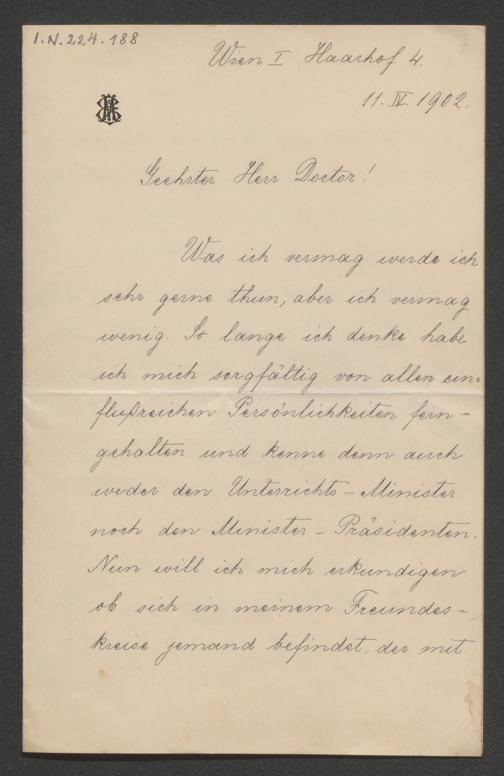 I.N. 224.188
Wien I Haarhof 4.
11. IV. 1902.
Geehrter Herr Doctor!
Was ich vermag werde ich
sehr gerne thun, aber ich vermag
wenig. So lange ich denke habe
ich mich sorgfältig von allen ein=
flußreichen Persönlichkeiten fern-
gehalten und kenne denn auch
weder den Unterrichts-Minister
noch den Minister-Präsidenten.
Nun will ich mich erkundigen
ob sich in meinem Freundes-
kreise jemand befindet, der mit